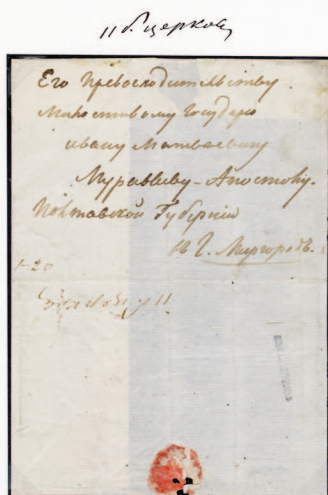 церков
Его Превосходительству
Милостивому Государю
ивану Матвеевичу
Муравьеву-Апостолу.
Полтавской Губернии
въ Г. Миргородъ.
1-20
11